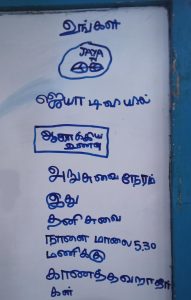 உங்கள்
JAYA
ஜெயா டிவியில்
ஆரோக்கிய
உணவு
அறுசுவை நேரம்
இது
தனி சுவை
நாளை மாலை 5.30
மணிக்கு
காணத்தவறாதீர்
கள்